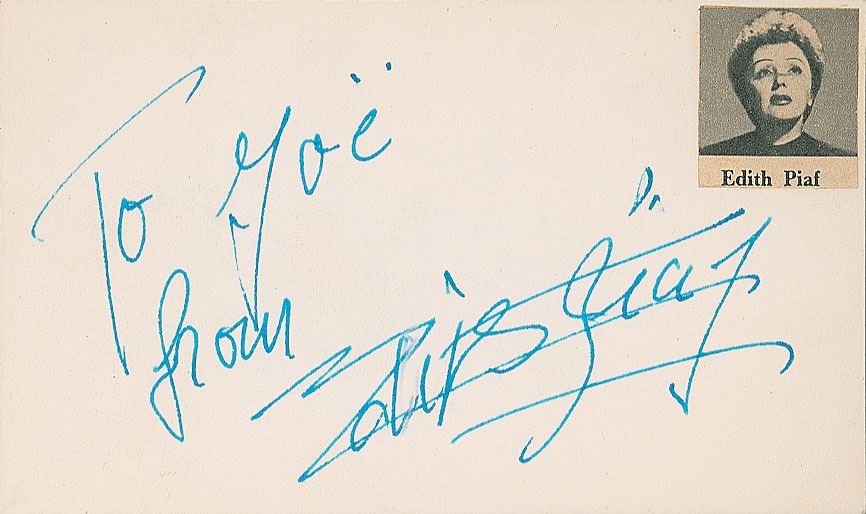 To Joë
from Edith Piaf
Edith Piaf